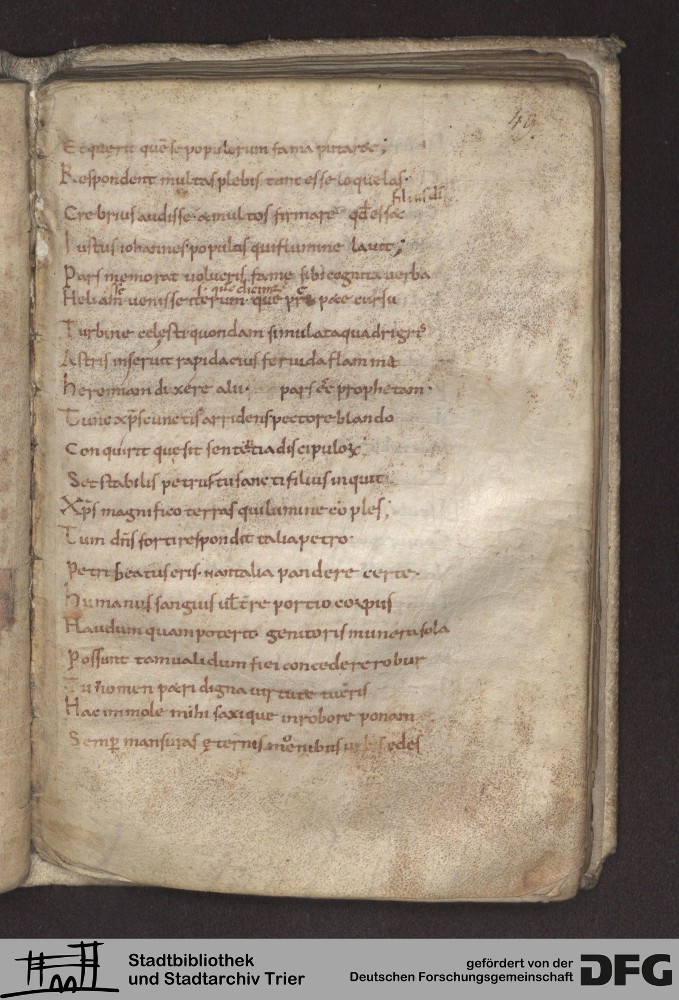 49.
Et querit quē se populorum fama putaret;
Respondent multas plebis tunc esse loquelas.
filius dī
Crebrius audisse & multos firmare qđ esset
Iustus iohannes populis qui flumine lauit;
Pars memorat volueris fame sibi cognita uerba
ł quē dicimꝰ
Heliam uenisse iterum quē pat& cursu
Turbine celesti quondam simulata quadrigis
Astris inseruit rapidae ius feruida flamme
hieremian dixere alii. pars eē prophetam.
Tunc xp̄s cunctis arridens pectore blando
Conquirit que sit sententia discipuloꝝ
Set stabilis petrus tu sancti filius inquit
Xp̄s magnifico terras qui lumine cōples;
Tum dn̄s forti respondit talia petro.
Petre beatus eris. nam talia pandere certe.
Humanus sanguis uł tr̄re portio corpus
Haudumquam poterit genitoris munera sola
Possunt tam ualidum fidei concedere robur
Tu nomen petri digna uirtute tueris
Hac in mole mihi saxique in robore ponam
Semp̄ mansuras ęternis moenibus sedes
Stadtbibliothek
und Stadtarchiv Trier
gefördert von der
Deutschen Forschungsgemeinschaft
DFG